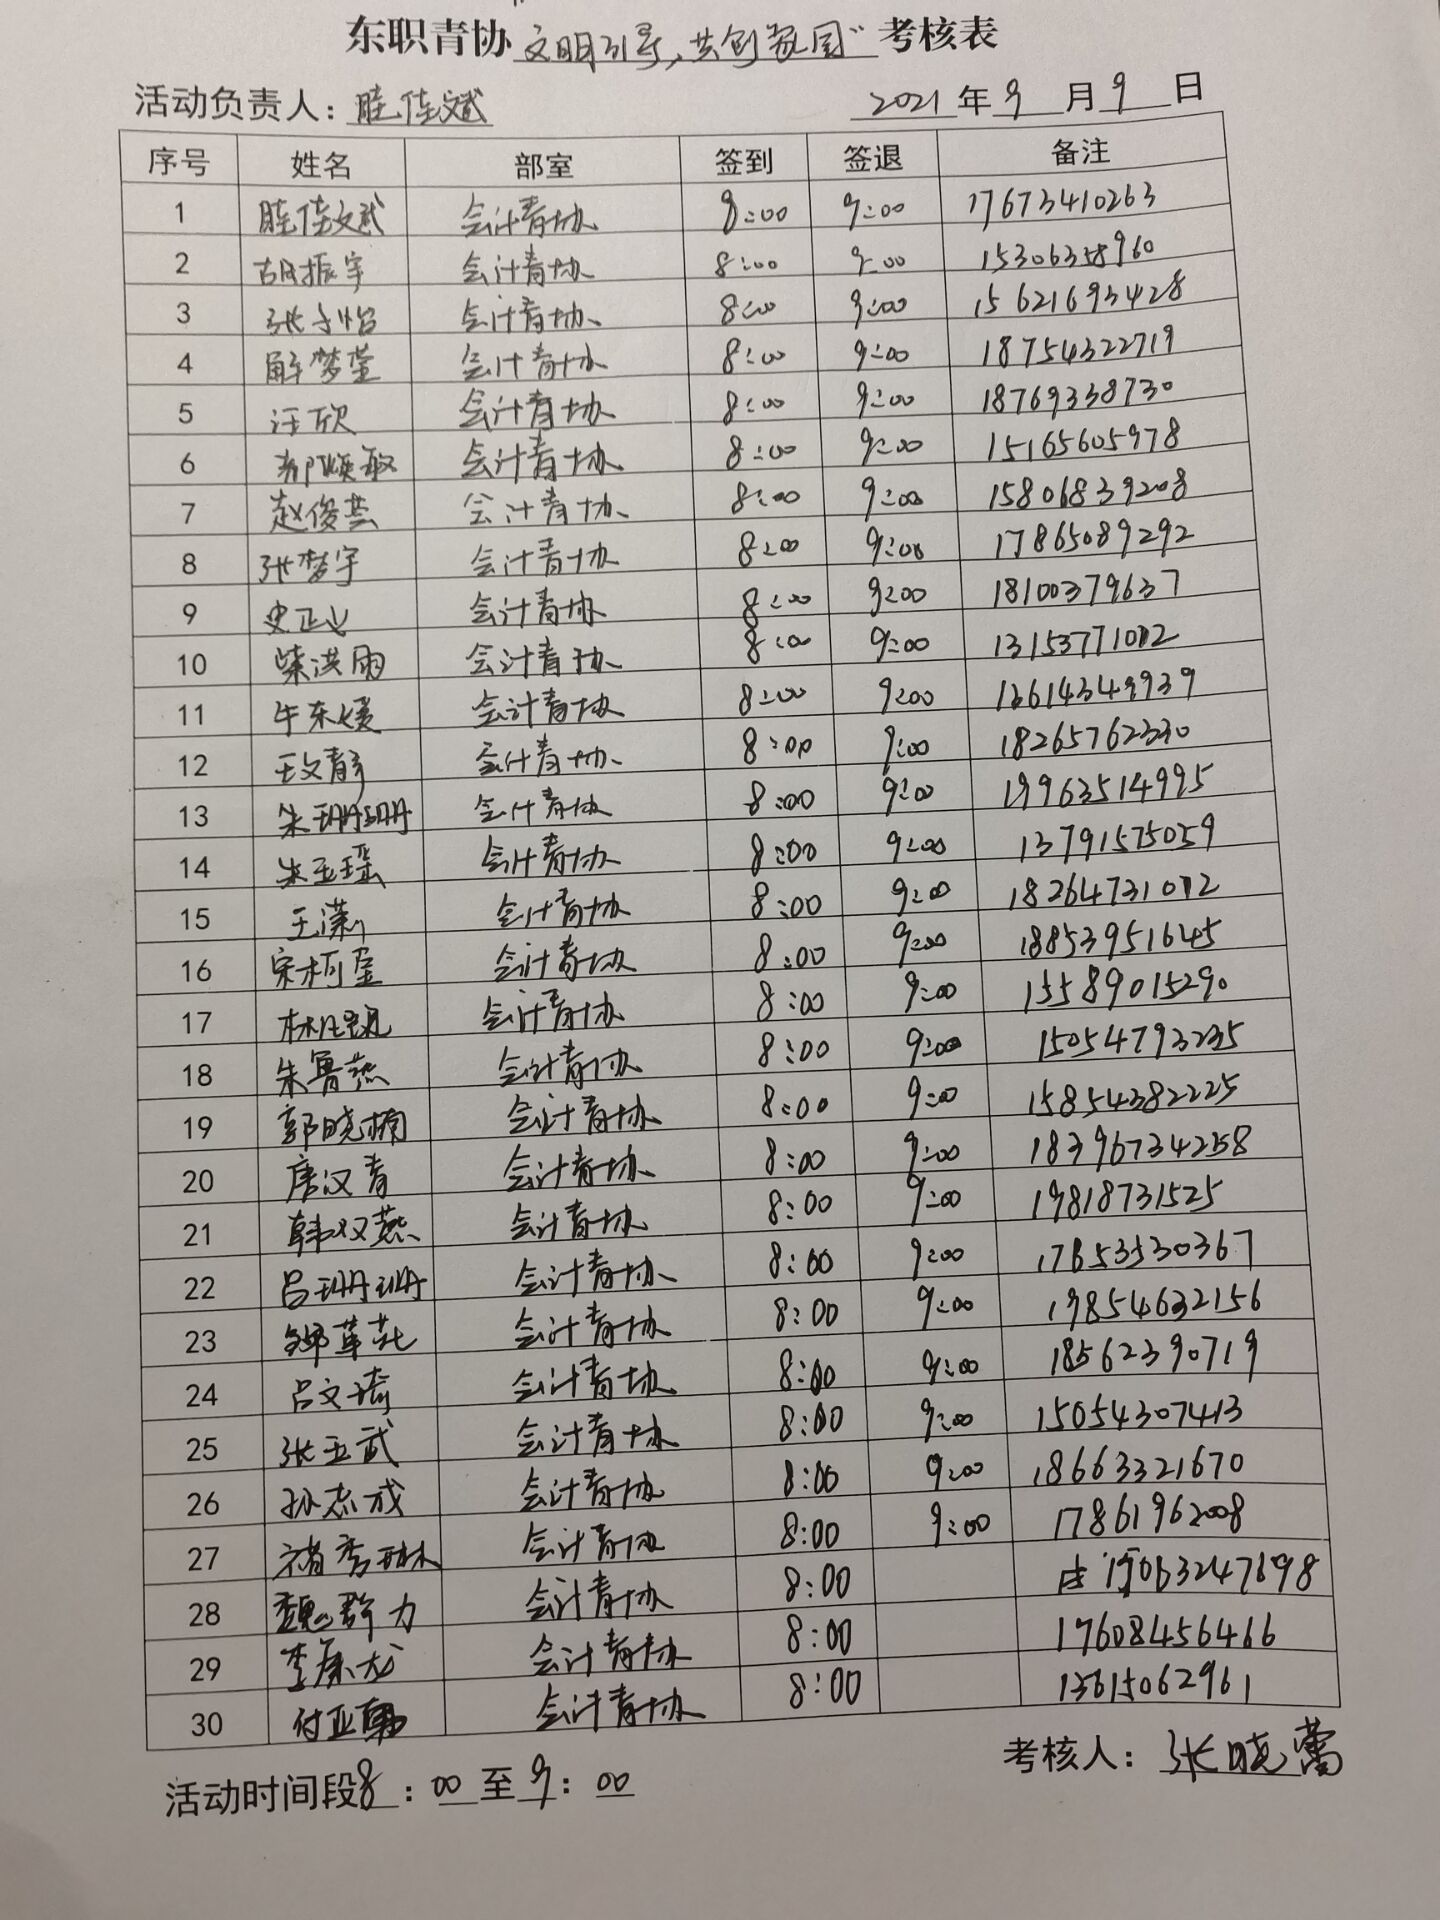 东职青协“文明引导,共创家园”考核表
活动负责人: 眭佳斌 2021年9月9日
序号 姓名 部室 签到 签退 备注
1 眭佳斌 会计青协 8:00 9:00 17673410263
2 胡振宇 会计青协 8:00 9:00 15306358960
3 张子怡 会计青协 8:00 9:00 15621693428
4 解梦莹 会计青协 8:00 9:00 18754322719
5 汪欣 会计青协 8:00 9:00 18769338730
6 会计青协 8:00 9:00 15165605978
7 赵俊芸 会计青协 8:00 9:00 15806839208
8 张梦宇 会计青协 8:00 9:00 17865089292
9 史正义 会计青协 8:00 9:00 18100379637
10 柴洪雨 会计青协 8:00 9:00
11 牛东媛 会计青协 8:00 9:00
12 王文静 会计青协 8:00 9:00 18265762330
13 朱珊珊 会计青协 8:00 9:00 19963514995
14 朱玉瑶 会计青协 8:00 9:00 13791575059
15 王潇 会计青协 8:00 9:00
16 宋柯莹 会计青协 8:00 9:00 18853951645
17 会计青协 8:00 9:00 15589015290
18 朱鲁燕 会计青协 8:00 9:00 15054793235
19 郭晓楠 会计青协 8:00 9:00 15854382225
20 唐汉青 会计青协 8:00 9:00 18396734258
21 韩双燕 会计青协 8:00 9:00 19818731525
22 吕珊珊 会计青协 8:00 9:00 17653530367
23 会计青协 8:00 9:00 19854632156
24 吕文琦 会计青协 8:00 9:00 18562390719
25 张玉武 会计青协 8:00 9:00 15054307413
26 孙志成 会计青协 8:00 9:00 18663321670
27 褚秀琳 会计青协 8:00 9:00 17861962008
28 魏群力 会计青协 8:00
29 李康龙 会计青协 8:00 17608456466
30 会计青协 8:00 13615062961
活动时间段8:00至9:00 考核人: 张晓蕾